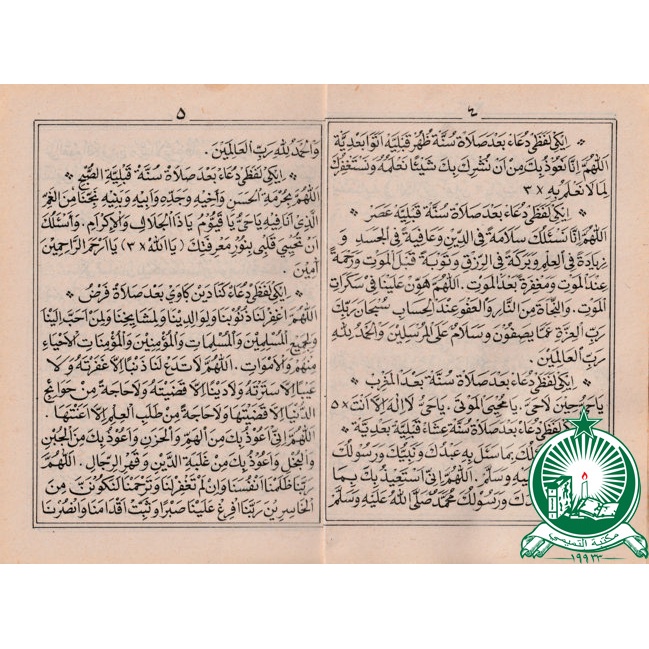 ٤
* ايكى لفظى دعاء بعد صلاة سنة ظهر قبلية اتوا بعدية
اللهم انا نعوذ بك من ان نشرك بك شيئا نعلمه ونستغفرك
لما لا نعلم به ×٣
* ايكى لفظى دعاء بعد صلاة سنة قبلية عصر *
اللهم انا نسئلك سلامة في الدين وعافية في الجسد و
زيادة في العلم وبركة في الرزق وتوبة قبل الموت ورحمة
عند الموت ومغفرة بعد الموت. اللهم هون علينا في سكرات
الموت. والنجاة من النار والعفو عند الحساب سبحان ربك
رب العزة عما يصفون وسلام على المرسلين والحمد لله
رب العالمين.
* ايكى لفظى دعاء بعد صلاة سنة بعد المغرب *
يا حي حين لا حي. يا محيى الموتى. يا حي لا اله الا انت ×٥
* ايكى لفظى دعاء بعد صلاة سنة عشاء قبلية بعدية *
لك بما سئل به عبدك ونبيك ورسولك
عليه وسلم. اللهم انى استعيذ بك بما
دك ورسولك محمد صلى الله عليه وسلم
٥
والحمد لله رب العالمين.
* ايكى لفظى دعاء بعد صلاة سنة قبلية الصبح *
اللهم بحرمة الحسن واخيه وجده وابيه وبنيه نجنا من الغم
الذي انا فيه يا حي يا قيوم يا ذا الجلال والاكرام. واسئلك
ان تحيي قلبى بنور معرفتك (يا الله ×٣) يا ارحم الراحمين
آمين.
* ايكى لفظى دعاء كنادين كاوى بعد صلاة فرض *
اللهم اغفر لنا ذنوبنا ولوالدينا ولمشايخنا ولمن احب الينا
ولجميع المسلمين والمسلمات والمؤمنين والمؤمنات الاحياء
منهم والاموات. اللهم لا تدع لنا ذنبا الا غفرته و لا
عيبا الا سترته ولا دينا الا قضيته ولا حاجة من حوائج
الدنيا الا قضيتها ولا حاجة من طلب العلم الا اعنتها.
اللهم انى اعوذ بك من الهم والحزن واعوذ بك من الجبن
والبخل واعوذ بك من غلبة الدين وقهر الرجال. اللهم
ربنا ظلمنا انفسنا وان لم تغفر لنا وترحمنا لنكونن من
الخاسرين ربنا افرغ علينا صبرا وثبت اقدامنا وانصرنا
مكتبة التميمي